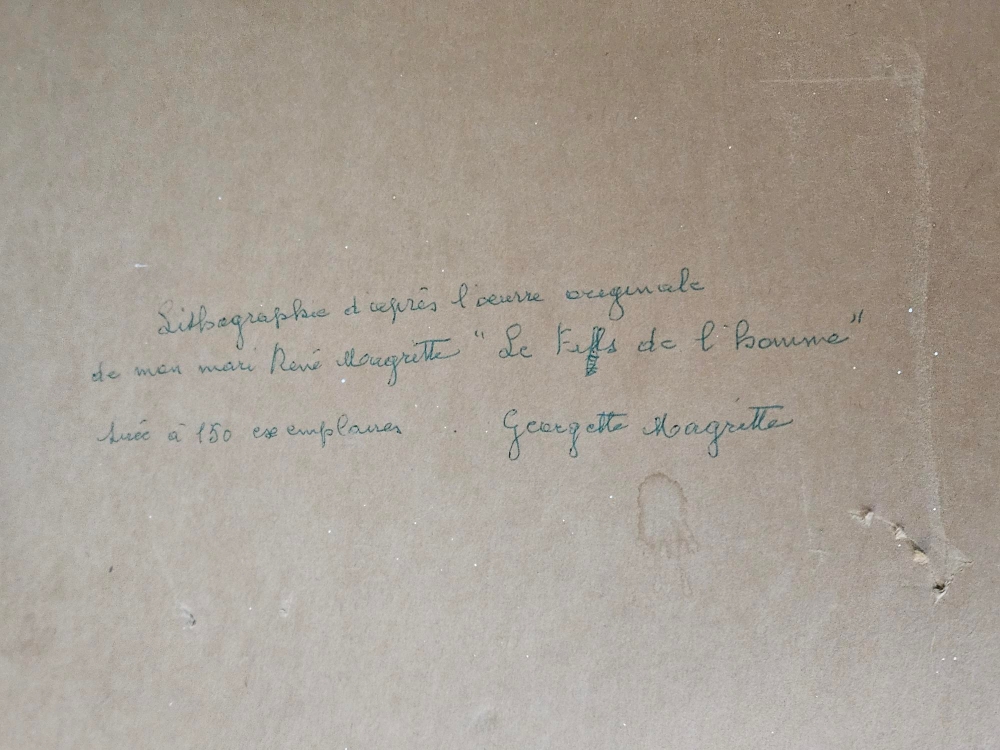 Lithographie d'après l'œuvre originale
de mon mari René Magritte "Le Fils de l'homme"
tirée à 150 exemplaires . Georgette Magritte